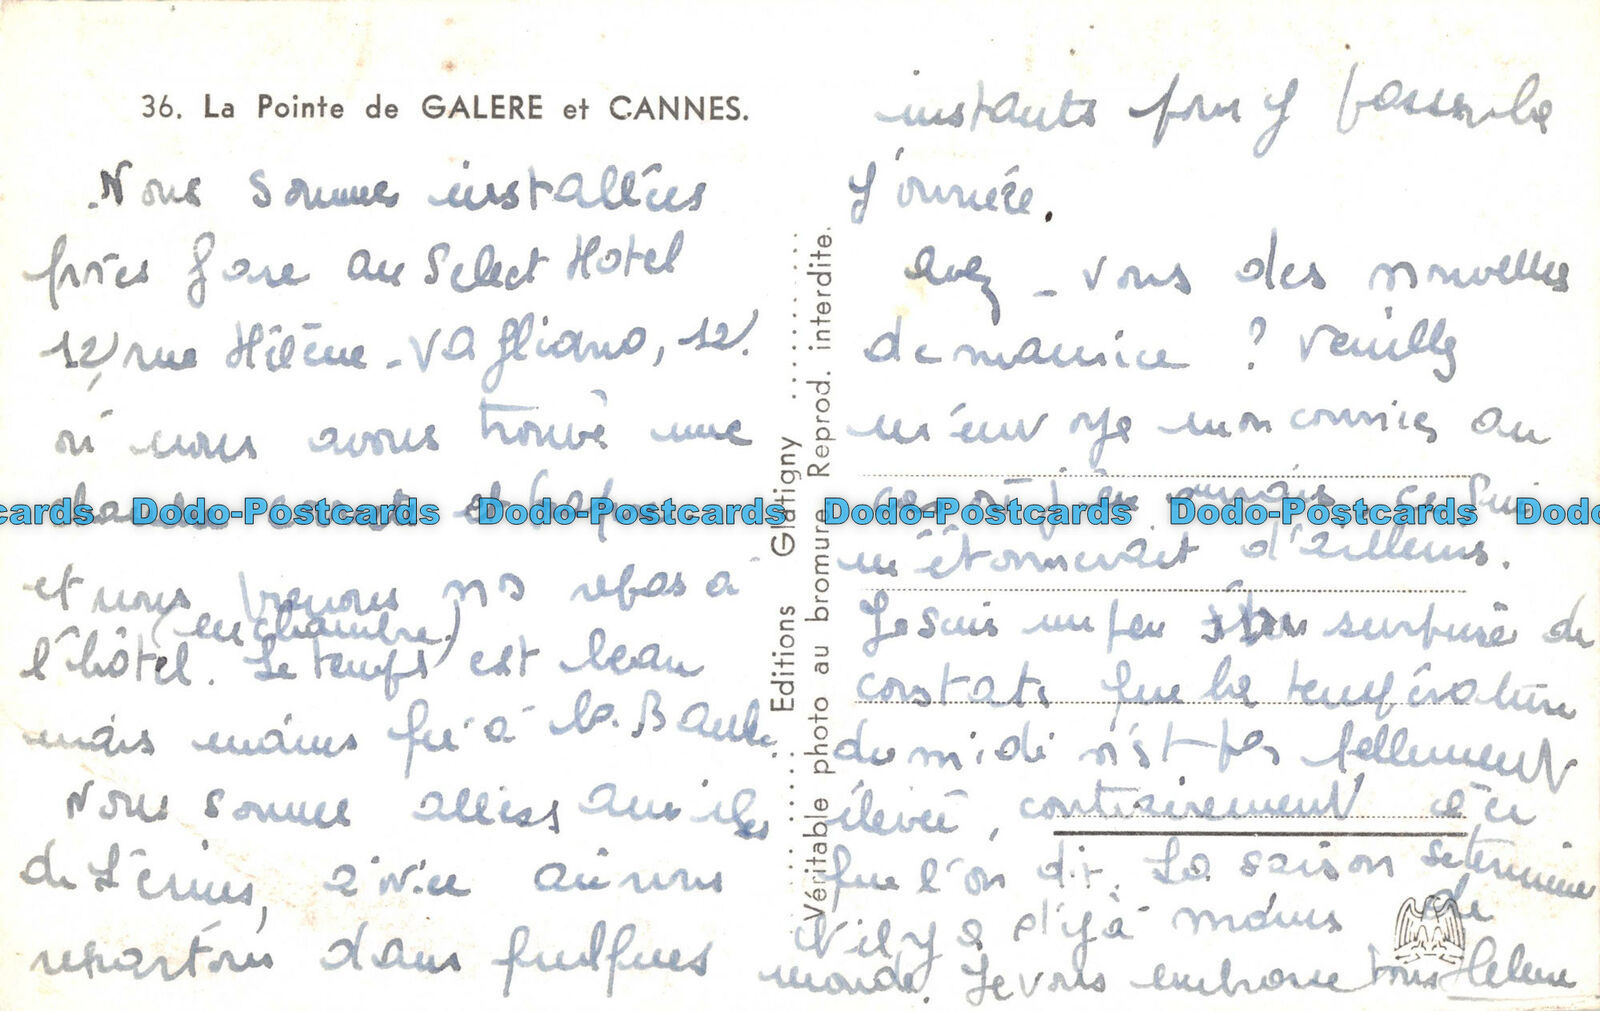 36. La Pointe de GALERE et CANNES.
Nous sommes installées
près gare au Select Hotel
12, rue Hélène-Vagliano, 12.
où nous avons trouvé une
et
Dodo-Postcards Dodo-Postcards Dodo-Postcards Dodo-Postcards
et nous prenons nos repas à
(en chambre)
l'hôtel. Le temps est beau
mais moins qu'à la Baule.
Nous sommes allées aux iles
de Lérins, à Nice où nous
repartons dans quelques
Editions Glatigny
Véritable photo au bromure. Reprod. interdite.
instants pour y passer la
journée.
Avez-vous des nouvelles
de maurice ? Veuillez
m'envoyer mon courrier au
m'étonnerait d'ailleurs.
Je suis un peu surprise de
constater que la température
du midi n'est pas tellement
élevée, contrairement à ce
que l'on dit. La saison se termine
il y a déjà moins de
monde. Je vous embrasse tous Helene